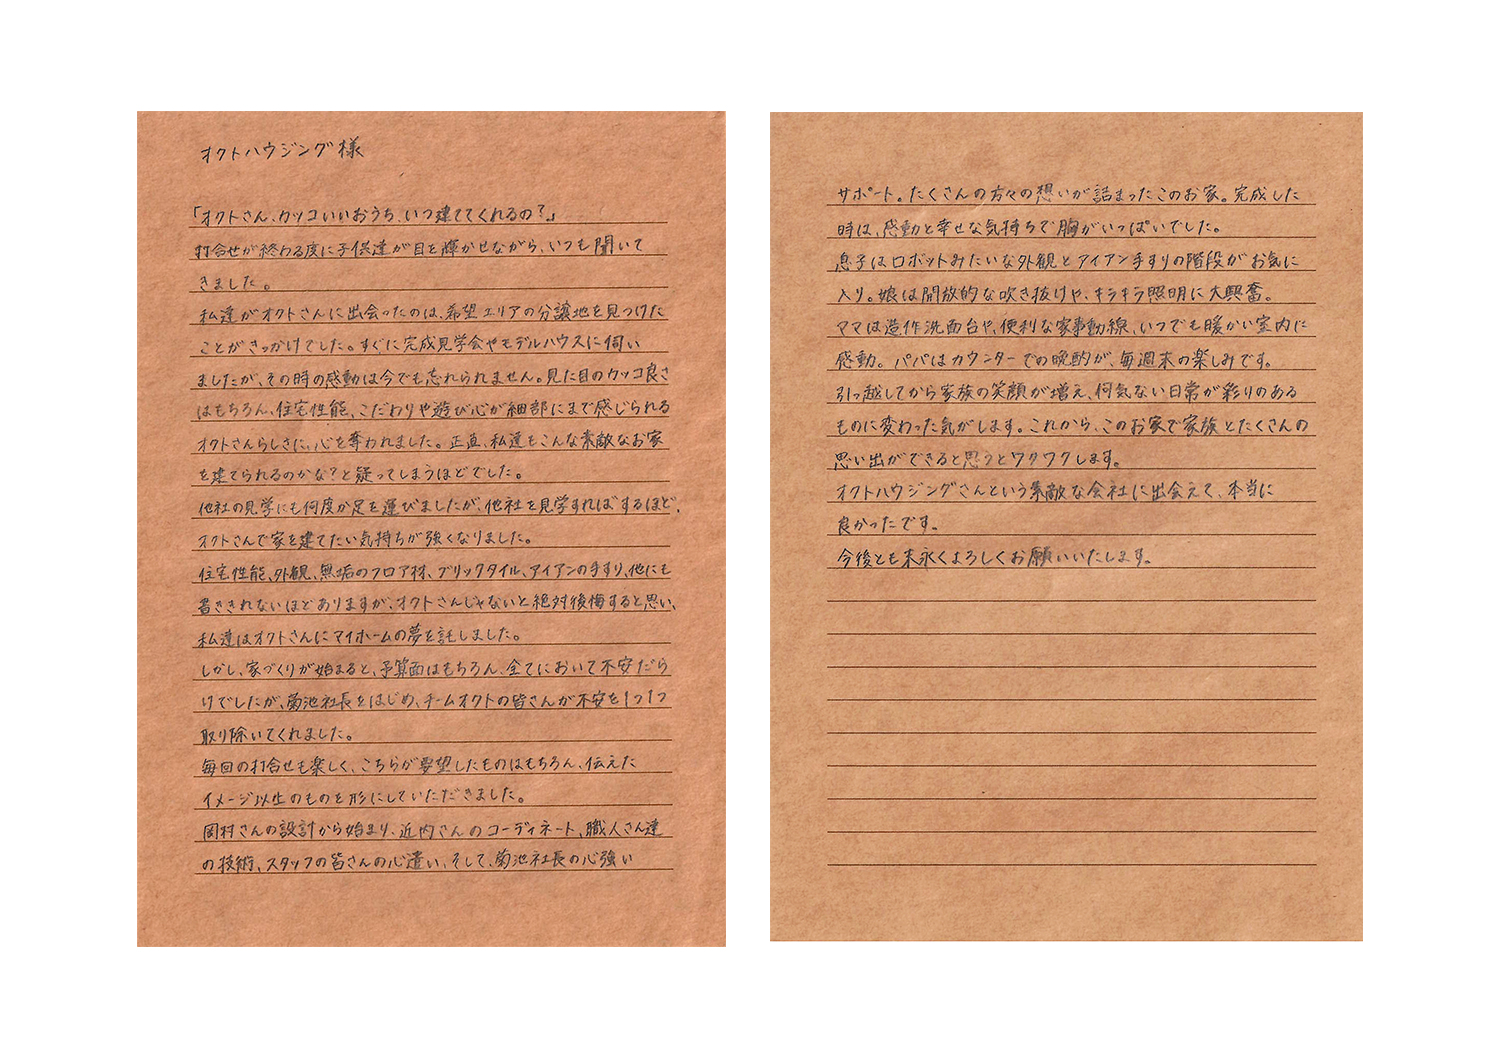 オクトハウジング様
「オクトさん、カッコいいおうち、いつ建ててくれるの?」
打合せが終わる度に子供達が目を輝かせながら、いつも聞いて
きました。
私達がオクトさんに出会ったのは、希望エリアの分譲地を見つけた
ことがきっかけでした。すぐに完成見学会やモデルハウスに伺い
ましたが、その時の感動は今でも忘れられません。見た目のカッコ良さ
はもちろん、住宅性能、こだわりや遊び心が細部にまで感じられる
オクトさんらしさに、心を奪われました。正直、私達もこんな素敵なお家
を建てられるのかな?と疑ってしまうほどでした。
他社の見学にも何度か足を運びましたが、他社を見学すればするほど、
オクトさんで家を建てたい気持ちが強くなりました。
住宅性能、外観、無垢のフロア材、ブリックタイル、アイアンの手すり、他にも
書ききれないほどありますが、オクトさんじゃないと絶対後悔すると思い、
私達はオクトさんにマイホームの夢を託しました。
しかし、家づくりが始まると、予算面はもちろん、全てにおいて不安だら
けでしたが、菊池社長をはじめ、チームオクトの皆さんが不安を1つ1つ
取り除いてくれました。
毎回の打合せも楽しく、こちらが要望したものはもちろん、伝えた
イメージ以上のものを形にしていただきました。
岡村さんの設計から始まり、近内さんのコーディネート、職人さん達
の技術、スタッフの皆さんの心遣い、そして、菊池社長の心強い
サポート。たくさんの方々の想いが詰まったこのお家。完成した
時は、感動と幸せな気持ちで胸がいっぱいでした。
息子はロボットみたいな外観とアイアン手すりの階段がお気に
入り。娘は開放的な吹き抜けや、キラキラ照明に大興奮。
ママは造作洗面台や、便利な家事動線、いつでも暖かい室内に
感動。パパはカウンターでの晩酌が、毎週末の楽しみです。
引っ越してから家族の笑顔が増え、何気ない日常が彩りのある
ものに変わった気がします。これから、このお家で家族とたくさんの
思い出ができると思うとワクワクします。
オクトハウジングさんという素敵な会社に出会えて、本当に
良かったです。
今後とも末永くよろしくお願いいたします。